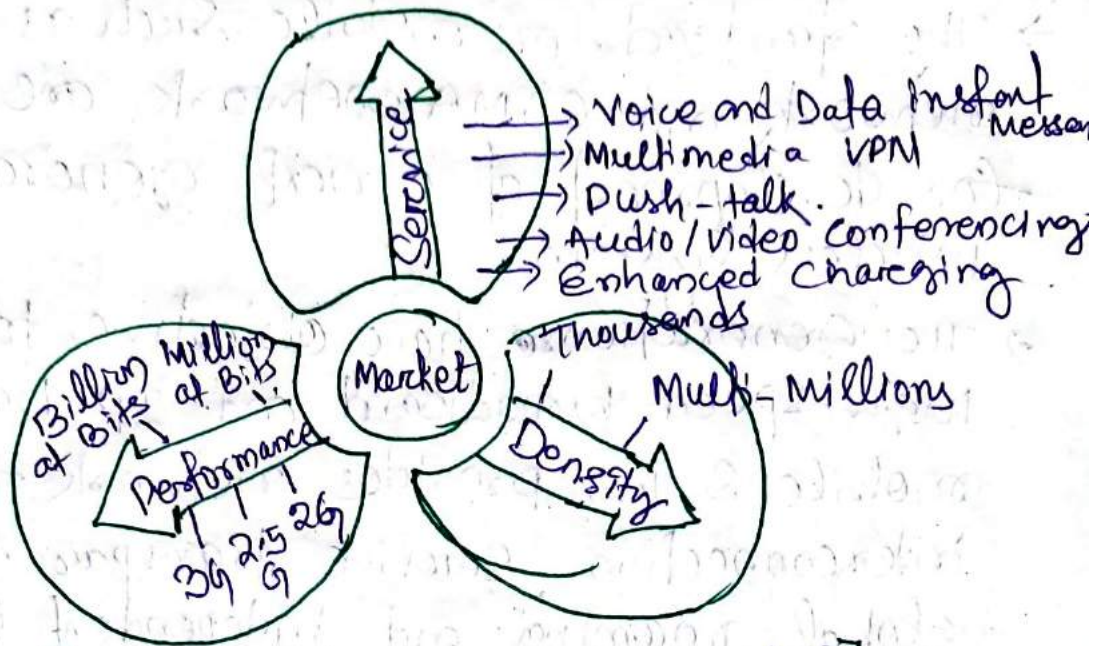 Service
→ Voice and Data Instant
Messan
→ Multimedia VPN
→ Dush-talk.
→ Audio/Video Conferencing
→ Enhanced Chareging
Thousands
Multi-Millions
Market
Density
Billion
at Bits
Million
at Bits
Performance
3G
2.5
G
2G